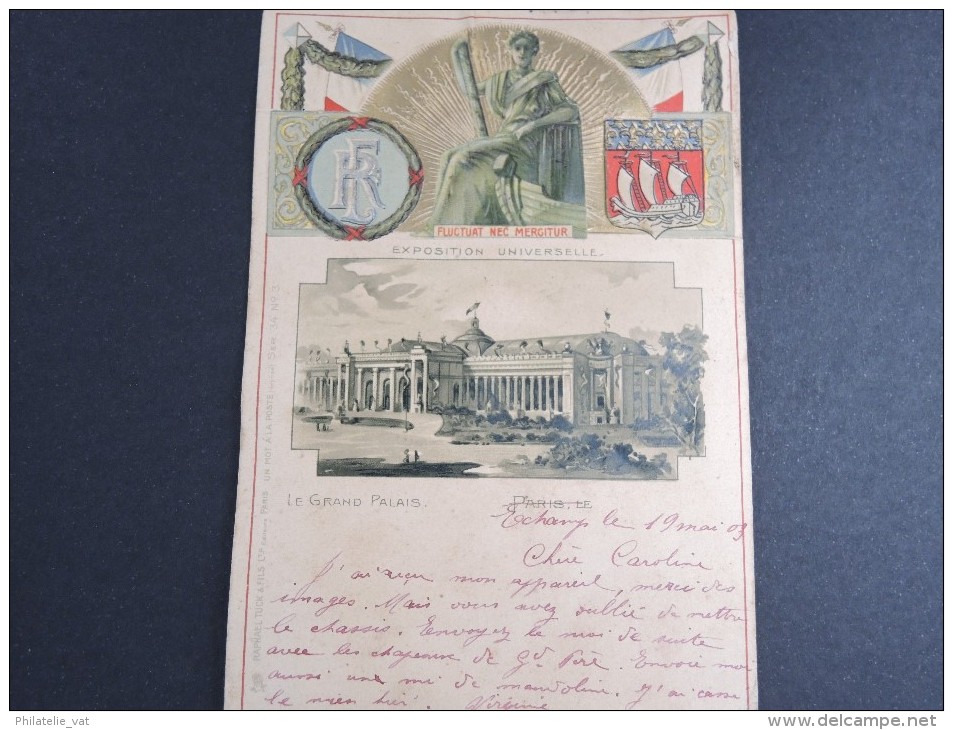 RF
FLUCTUAT NEC MERGITUR
EXPOSITION UNIVERSELLE.
LE GRAND PALAIS.
PARIS, LE
Echamp le 19 mai 03
Chère Caroline
J'ai reçu mon appareil, merci des
images. Mais vous avez oublié de mettre
le chassis. Envoyez le moi de suite
avec les chapeaux de Gd Père. Envoie moi
aussi une mi de mandoline. J'ai cassé
le mien hier. Virginie
RAPHAEL TUCK & FILS PARIS. UN MOT À LA POSTE SÉR. 14 No 3
Philatelie_vat
http://www.delcampe.net